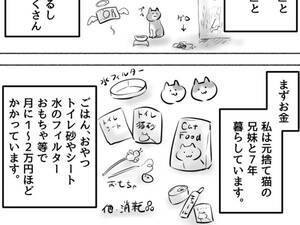 こと
こと
るし
くさん
まずお金
私は元捨て猫の
兄妹と7年
暮らしています。
水フィルター
トイレシート
トイレ猫砂
Cat
Food
おもちゃ
他消耗品
ごはん、おやつ
トイレ砂やシート
水のフィルター
おもちゃ等で
月に1〜2万円ほど
かかっています。